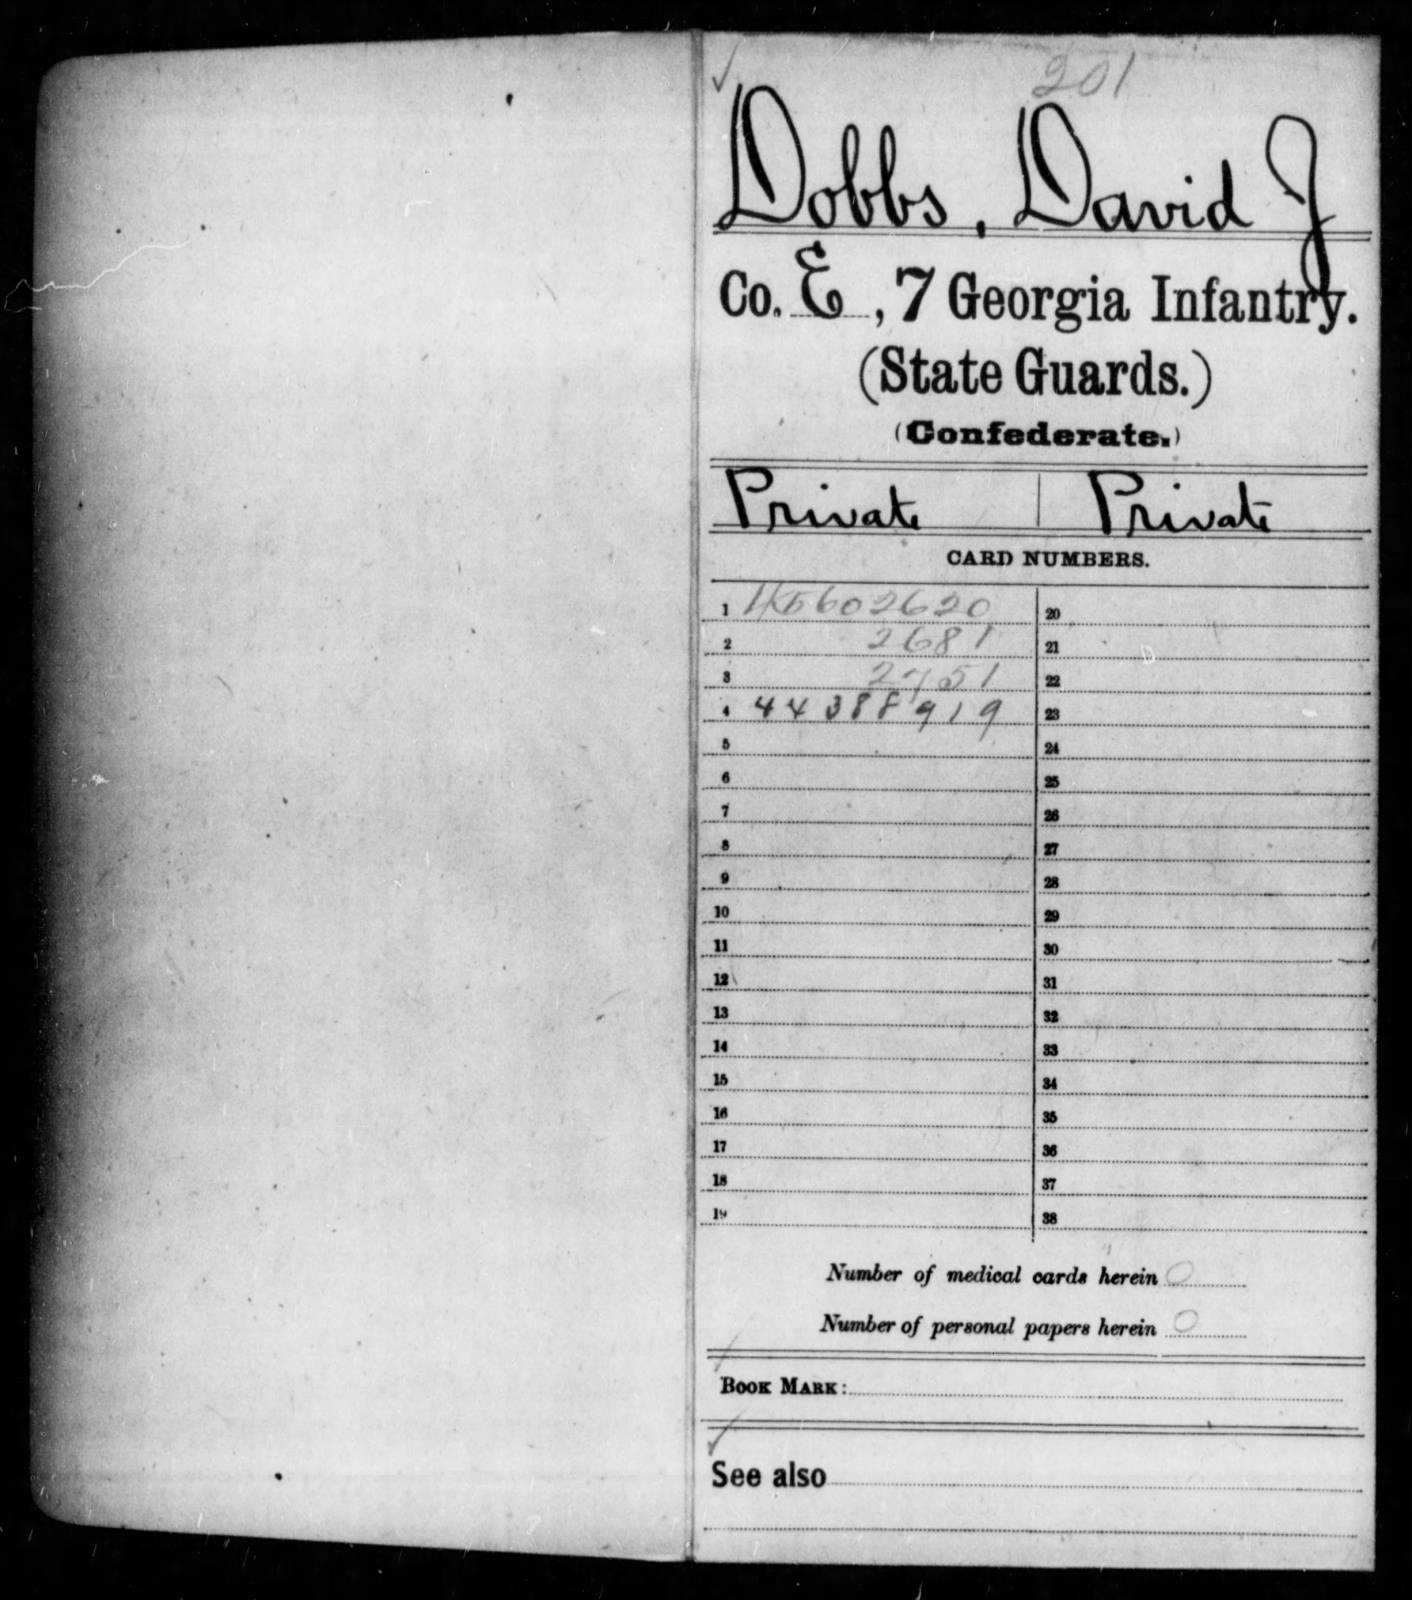 201
Dobbs, David J
Co. E, 7 Georgia Infantry.
(State Guards.)
(Confederate.)
Private | Private
CARD NUMBERS.
1 45602620 20
2 2681 21
3 2751 22
4 44388919 23
5 24
6 25
7 26
8 27
9 28
10 29
11 30
12 31
13 32
14 33
15 34
16 35
17 36
18 37
19 38
Number of medical cards herein 0
Number of personal papers herein 0
BOOK MARK:
See also